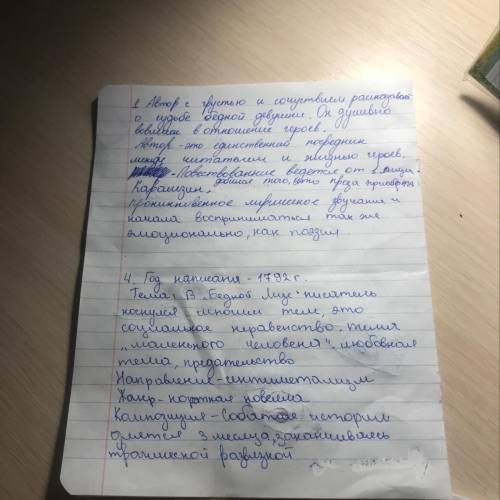 1 Автор с грустью и сочуствием рассказывает
о судьбе бедной девушки. Он душевно
в отношение героев.
Автор - это единственный посредник
между читателем и жизнью героев.
- Повествование ведется от лица
Карамзин, добился того, что проза приобрела
проникновенное лиричиское звучание и
начала восприниматься так же
эмоционально, как поэзия
4. Год написаня - 1792 г.
Тема: В "Бедной Лизе" писатель
коснулся многих тем, это
социальное неравенство. тема
"маленького человека", любовная
тема, предательство
Направление - сентиметализм
Жанр - короткая новелла
Композиция - События истории
длятся 3 месяца, заканчиваясь
трагической развязкой